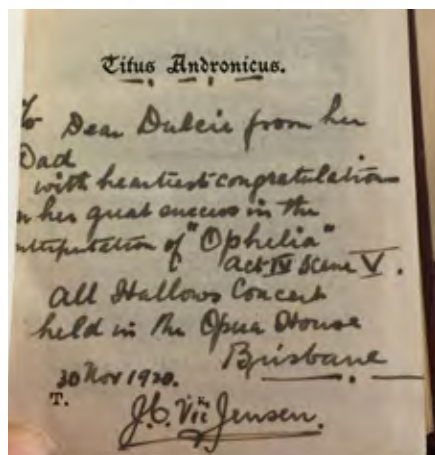 Titus Andronicus.
To Dear Dulcie from her
Dad
with heartiest congratulations
on her great success in the
interpretation of "Ophelia"
Act IV Scene V.
All Hallows Concert
held in the Opera House
Brisbane
30 Nov 1920.
T.
J.C. Jensen.